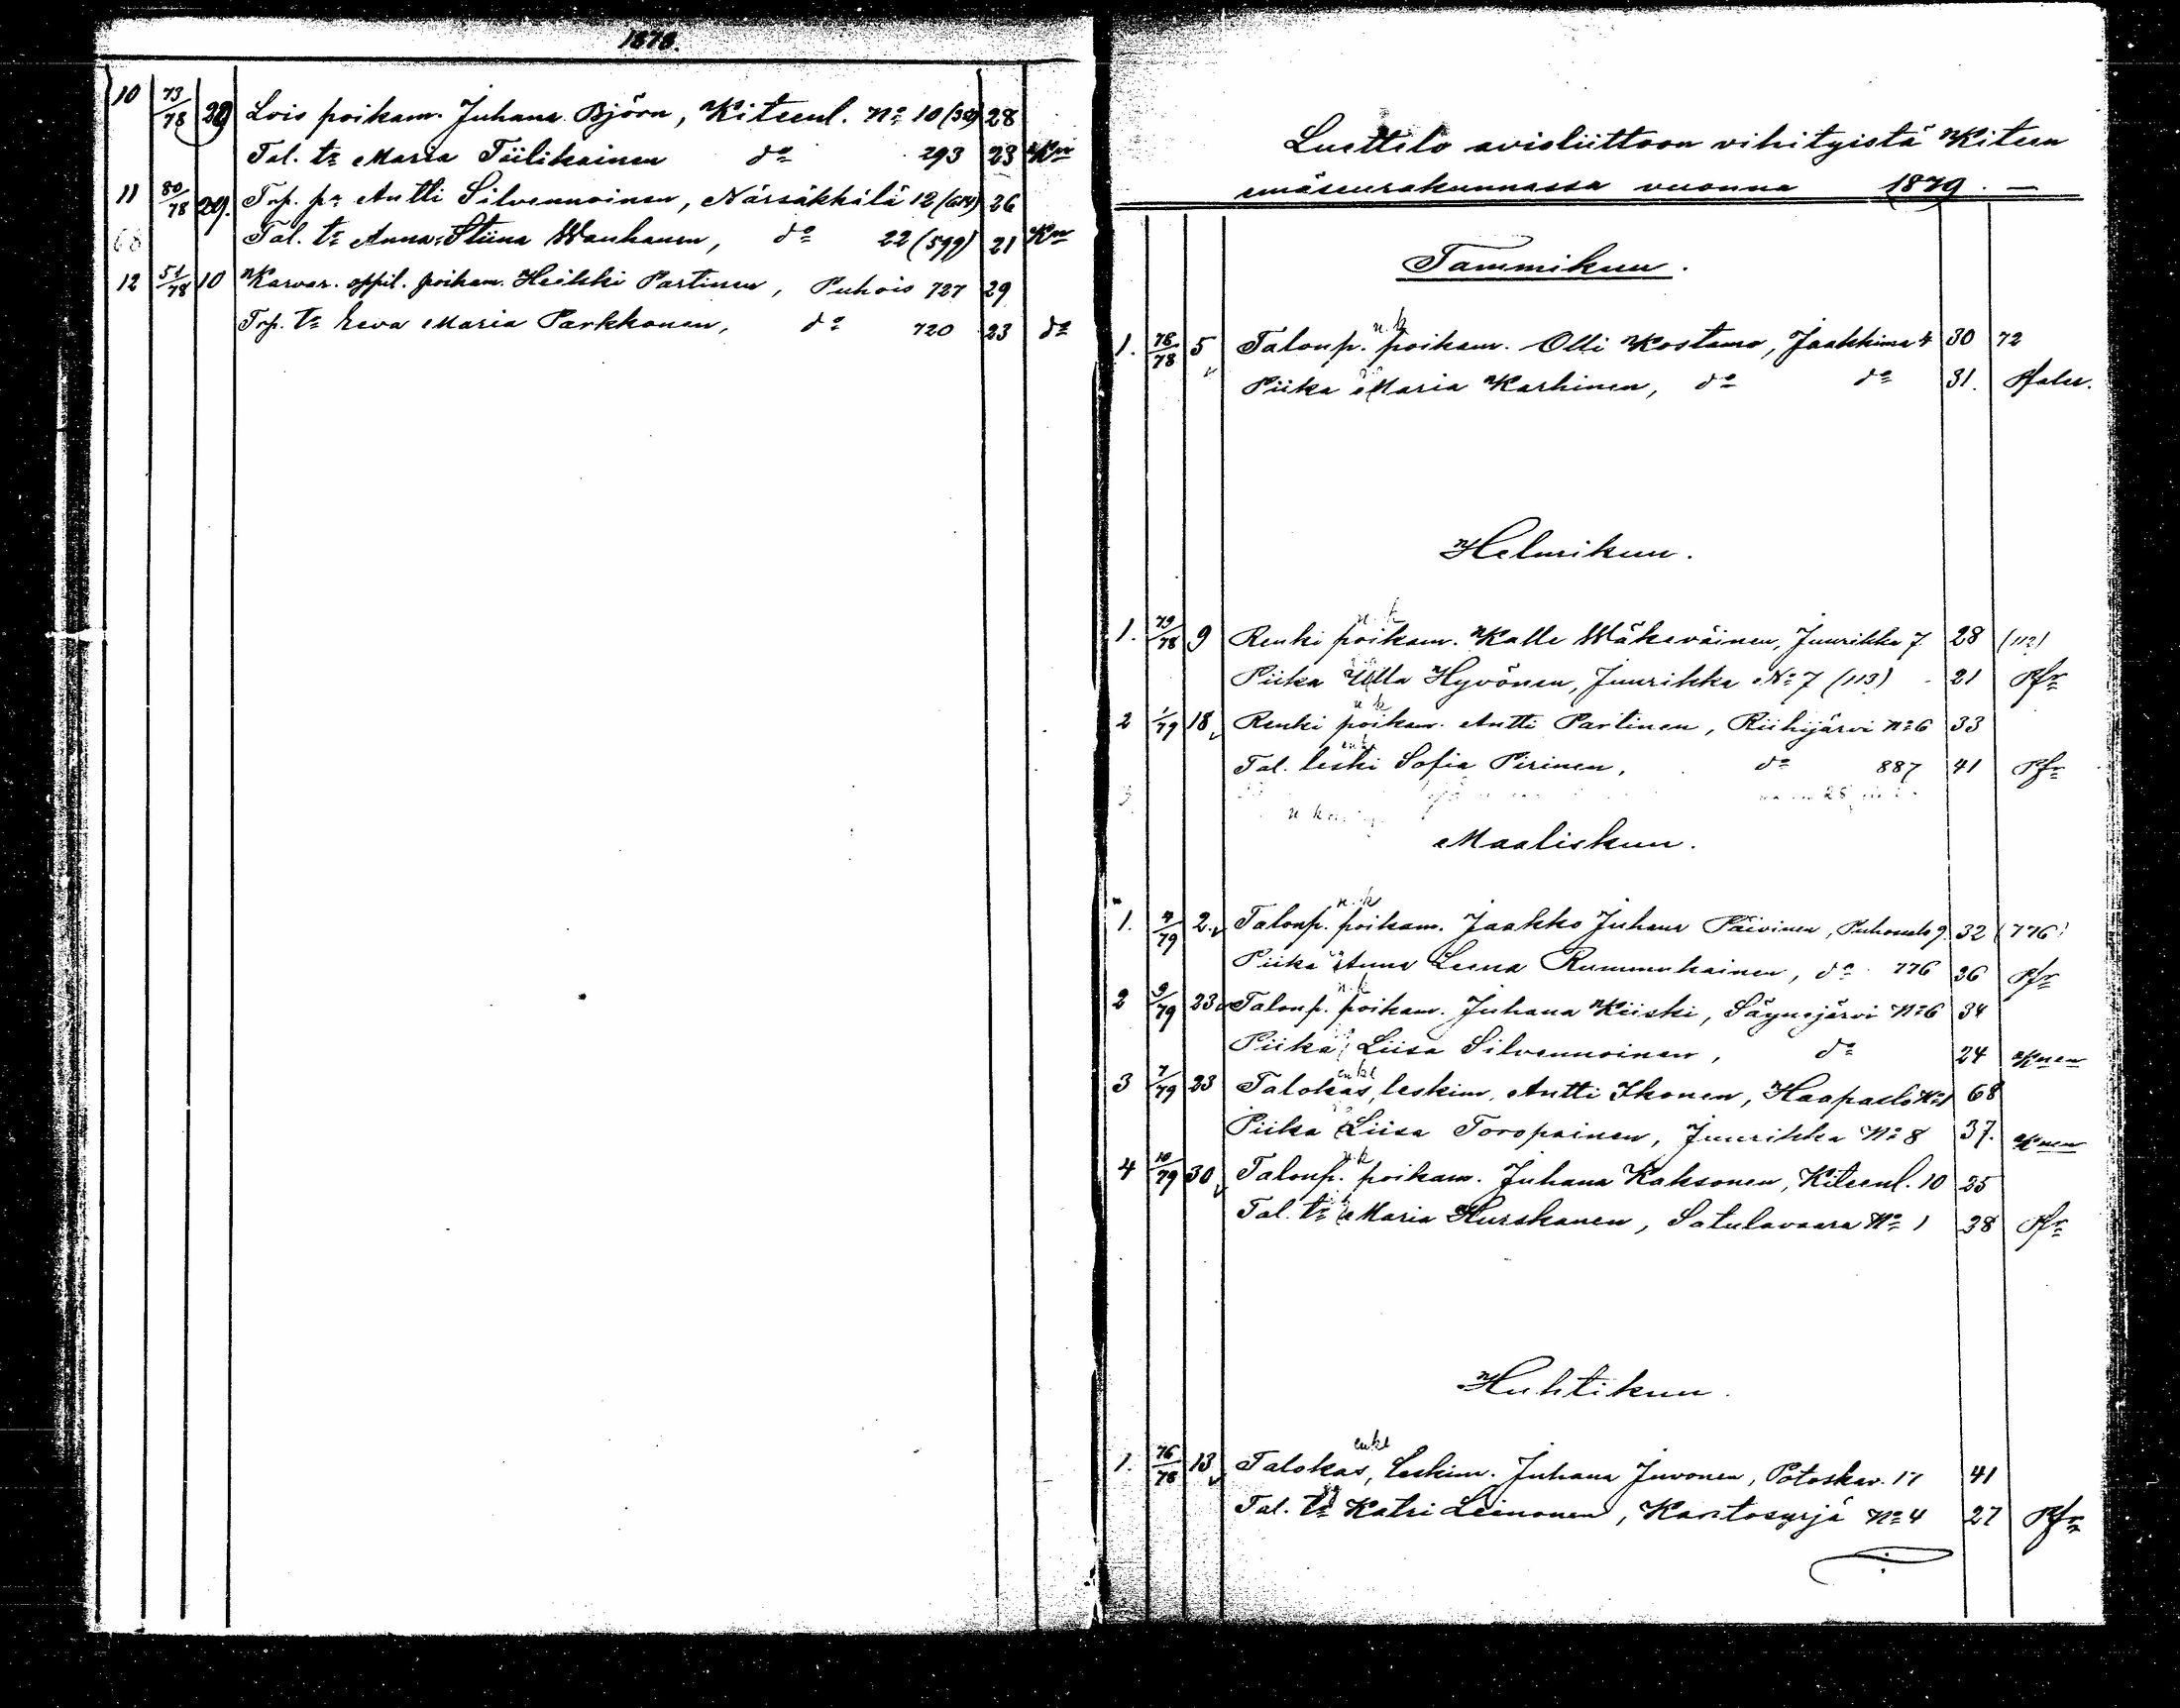 1878.
10 73/78 29 Lois poikam. Juhana Björn, Kiteenl. No 10 28
Tal. tr Maria Tiilikainen do 293 23 Kn
11 80/78 29. Trp. pa Antti Silvennoinen, Närsäkkälä 12 (614) 26
68 Tal. tr Anna Stiina Wauhanen, do 22 (599) 21 Kn
12 51/78 10 Karvar. oppil. poikam. Heikki Partinen, Puhois 727 29
Trp. tr Eeva Maria Parkkonen, do 720 23 do
Luettelo avioliittoon vihityistä Kiteen
emäseurakunnassa vuonna 1879. —
Tammikuu.
n. k
1. 78/78 5 Talonp. poikam. Olli Kostamo, Jaakkima 4 30 72
Piika Maria Karhinen, do do 31.
Helmikuu.
n. k
1. 79/78 9 Renki poikam. Kalle Wäkeväinen, Juurikka 7 28 (112)
Piika Ulla Hyvönen, Juurikka No 7 (113) 21 Pfr
n k
2 1/79 18 Renki poikam. Antti Partinen, Riihijärvi No 6 33
enk
Tal. leski Sofia Pirinen, do 887 41 Pfr
3
Maaliskuu.
n. k
1. 4/79 2. Talonp. poikam. Jaakko Juhana Päivinen, 9 32 (776)
Piika Anna Leena Rummukainen, do 776 26 Pfr
n. k
2 9/79 23 Talonp. poikam. Juhana Kiiski, Säynejärvi No 6 34
Piika Liisa Silvennoinen, do 24 Knen
enkl
3 7/79 23 Talokas, leskim. Antti Ikonen, No 1 68
Piika Liisa Toropainen, Juurikka No 8 37. Knen
n. k
4 10/79 30 Talonp. poikam. Juhana Kaksonen, Kiteenl. 10 25
Tal. tr Maria Hurskanen, Satulavaara No 1 38 Pfr
Huhtikuu.
enkl
1. 76/78 13 Talokas, Leskim. Juhana Juvonen, Potoskav. 17 41
Tal. tr Katri Leinonen, Kontosyrjä No 4 27 Pfr